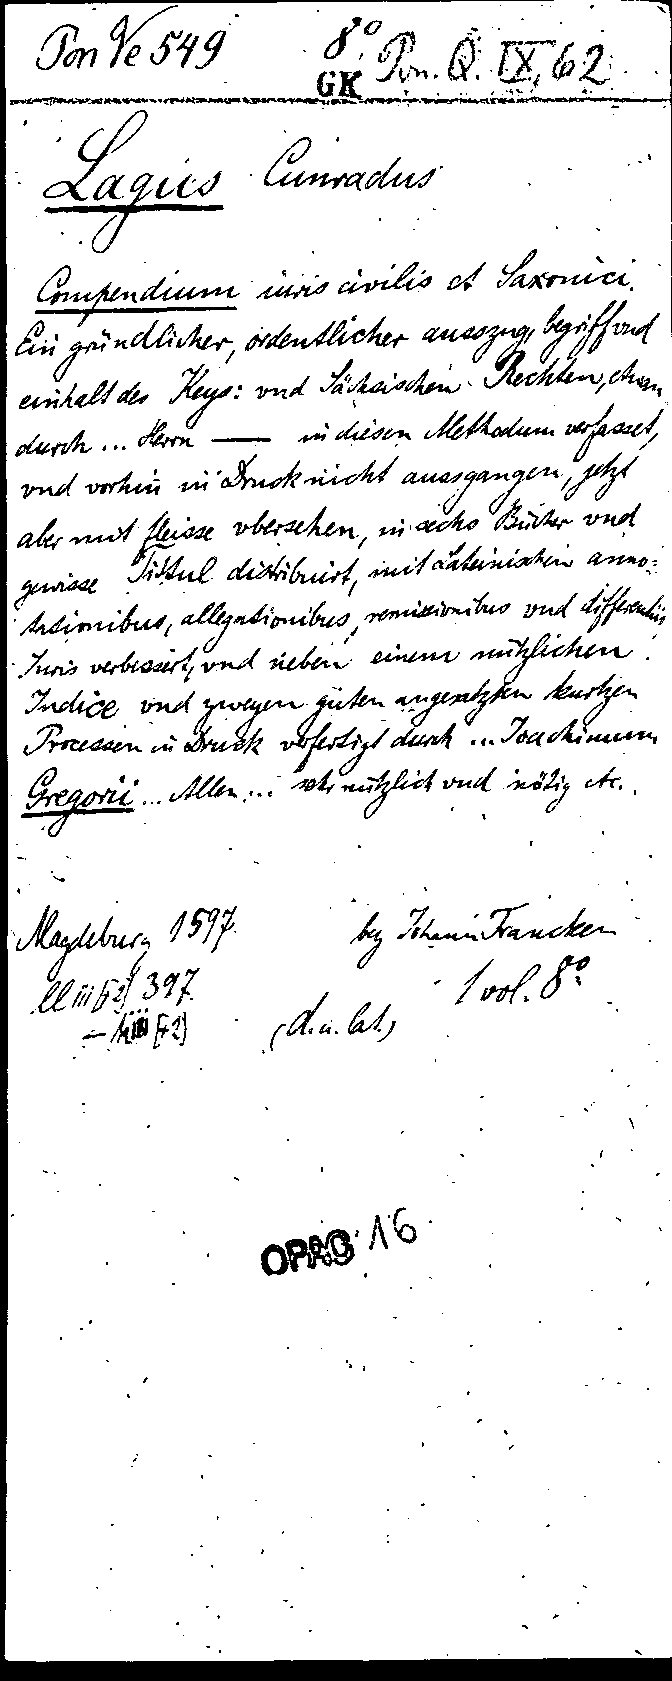 Pon Ve 549
8° Pon. Q. IX, 62
GK
Lagus Cunradus
Compendium iuris civilis et Saxonici.
Ein gründlicher, ordentlicher ausszug, begriff vnd
einhalt des Keys: vnd Sächsischen Rechten, etwan
durch ... Herrn —— in diesen Methodum verfasset,
vnd vorhin in Druck nicht aussgangen, jetzt
aber mit fleisse vbersehen, in sechs Bücher vnd
gewisse Tittul distribuirt, mit Lateinischen anno-
tationibus, allegationibus, remissionibus vnd differentiis
Iuris verbessert, vnd neben einem nützlichen
Indice vnd zweyen guten angesatzten kurtzen
Processen in Druck vorfertigt durch ... Joachimum
Gregorii ... Allen ... sehr nützlich vnd nötig etc.
Magdeburg 1597. bey Johann Francken
397. 1 vol. 8°
(d. u. lat.)
OPAC 16